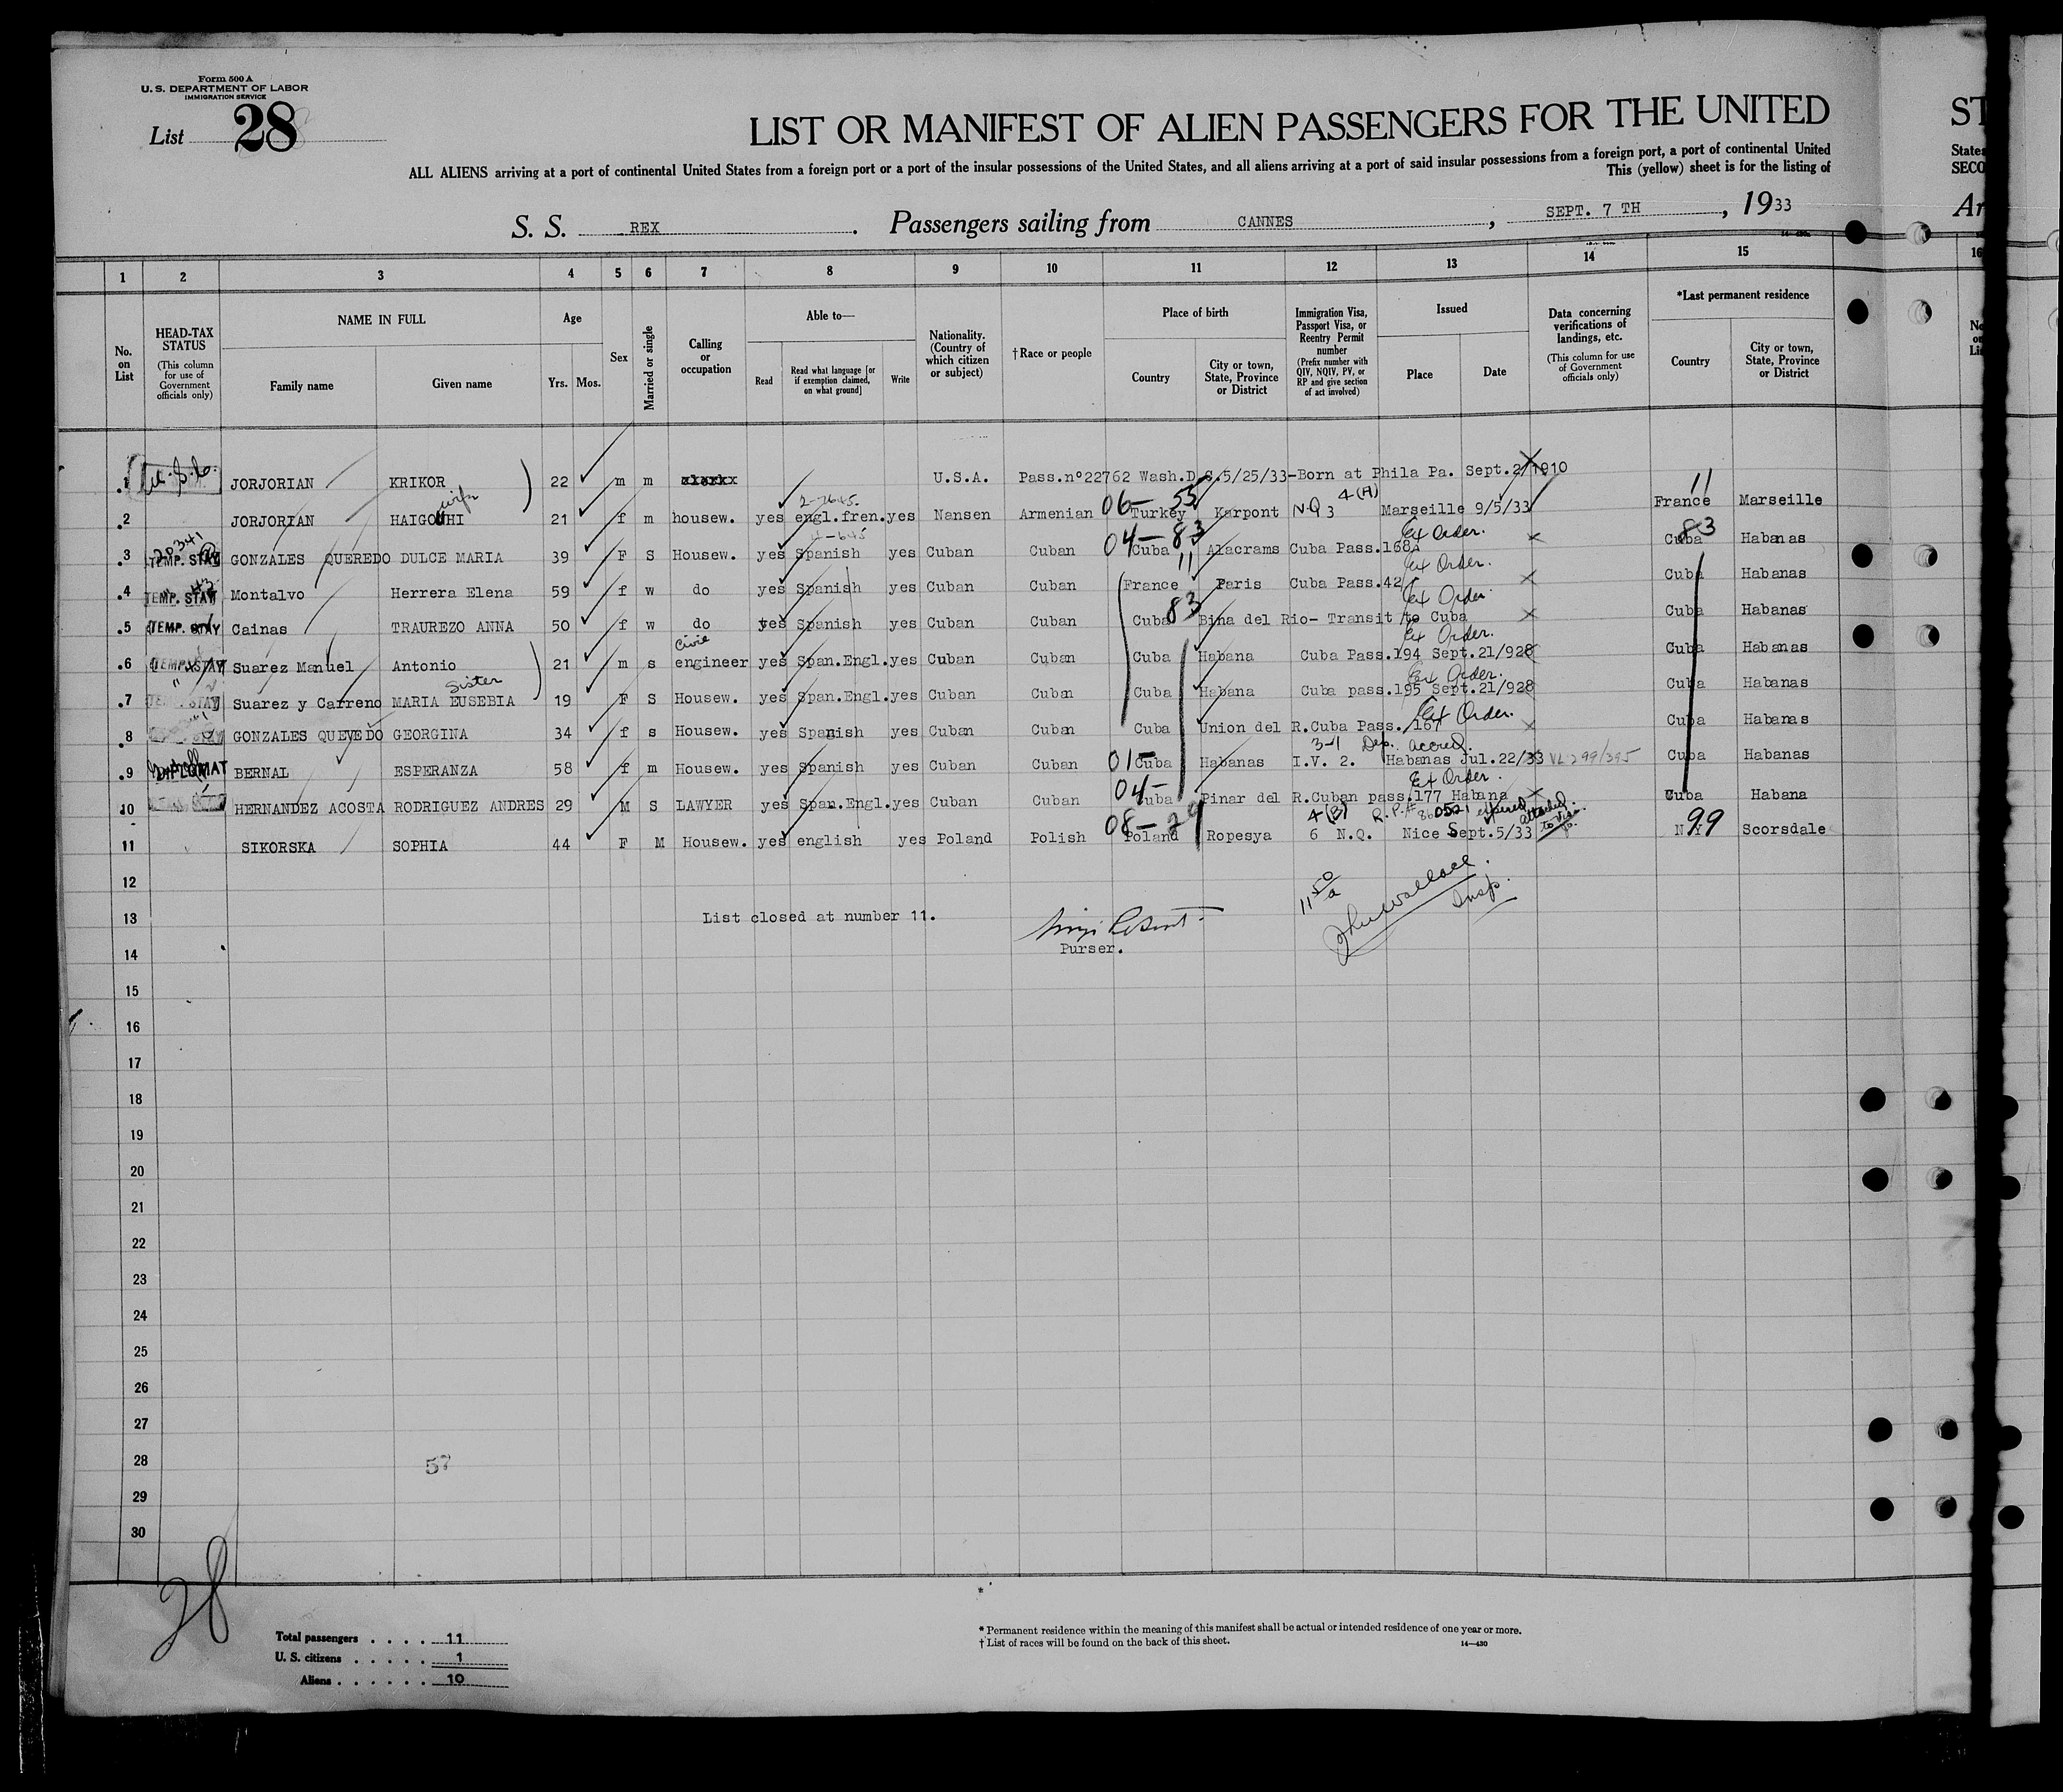 Form 500 A
U. S. DEPARTMENT OF LABOR
IMMIGRATION SERVICE
List 28
LIST OR MANIFEST OF ALIEN PASSENGERS FOR THE UNITED
ST
ALL ALIENS arriving at a port of continental United States from a foreign port or a port of the insular possessions of the United States, and all aliens arriving at a port of said insular possessions from a foreign port, a port of continental United
States
This (yellow) sheet is for the listing of
SECO
S. S. REX. Passengers sailing from CANNES, SEPT. 7 TH, 1933
Ar
1 2 3 4 5 6 7 8 9 10 11 12 13 14 15 16
No. on List
HEAD-TAX STATUS (This column for use of Government officials only)
NAME IN FULL Family name Given name
Age Yrs. Mos.
Sex
Married or single
Calling or occupation
Able to— Read Read what language [or if exemption claimed, on what ground] Write
Nationality. (Country of which citizen or subject)
†Race or people
Place of birth Country City or town, State, Province or District
Immigration Visa, Passport Visa, or Reentry Permit number (Prefix number with QIV, NQIV, PV, or RP and give section of act involved)
Issued Place Date
Data concerning verifications of landings, etc. (This column for use of Government officials only)
*Last permanent residence Country City or town, State, Province or District
1 JORJORIAN KRIKOR 22 m m U.S.A. Pass.nº22762 Wash.D.C.5/25/33-Born at Phila Pa. Sept.2/1910
wife 2-2645. 06-55 4(A) 11
2 JORJORIAN HAIGOUHI 21 f m housew. yes engl.fren. yes Nansen Armenian Turkey Karpont N.Q 3 Marseille 9/5/33 France Marseille
4-645 04-83 Ex Order. 83
3 TEMP. STAY GONZALES QUEREDO DULCE MARIA 39 F S Housew. yes Spanish yes Cuban Cuban Cuba Alacrams Cuba Pass.168 Cuba Habanas
11 Ex Order.
4 TEMP. STAY Montalvo Herrera Elena 59 f w do yes Spanish yes Cuban Cuban France Paris Cuba Pass.42 Cuba Habanas
83 Ex Order.
5 TEMP. STAY Cainas TRAUREZO ANNA 50 f w do yes Spanish yes Cuban Cuban Cuba Bina del Rio- Transit to Cuba Cuba Habanas
Civil Ex Order.
6 TEMP. STAY Suarez Manuel Antonio 21 m s engineer yes Span.Engl. yes Cuban Cuban Cuba Habana Cuba Pass.194 Sept.21/928 Cuba Habanas
Sister Ex Order.
7 TEMP. STAY Suarez y Carreno MARIA EUSEBIA 19 F S Housew. yes Span.Engl. yes Cuban Cuban Cuba Habana Cuba pass.195 Sept.21/928 Cuba Habanas
Ex Order.
8 GONZALES QUEVEDO GEORGINA 34 f s Housew. yes Spanish yes Cuban Cuban Cuba Union del R.Cuba Pass. 167 Cuba Habanas
01- 3-1 Dep. accred.
9 DIPLOMAT BERNAL ESPERANZA 58 f m Housew. yes Spanish yes Cuban Cuban Cuba Habanas I.V. 2. Habanas Jul.22/33 VL 299/395 Cuba Habanas
04- Ex Order.
10 HERNANDEZ ACOSTA RODRIGUEZ ANDRES 29 M S LAWYER yes Span.Engl. yes Cuban Cuban Cuba Pinar del R.Cuban pass.177 Habana Cuba Habana
08-29 4(B) expired attached to visa 99
11 SIKORSKA SOPHIA 44 F M Housew. yes english yes Poland Polish Poland Ropesya 6 N.Q. Nice Sept.5/33 N.Y Scorsdale
12
13 List closed at number 11.
Purser.
Insp.
14
15
16
17
18
19
20
21
22
23
24
25
26
27
28
57
29
30
28
Total passengers . . . . 11
U. S. citizens . . . . . 1
Aliens . . . . . . 10
* Permanent residence within the meaning of this manifest shall be actual or intended residence of one year or more.
† List of races will be found on the back of this sheet. 14—430